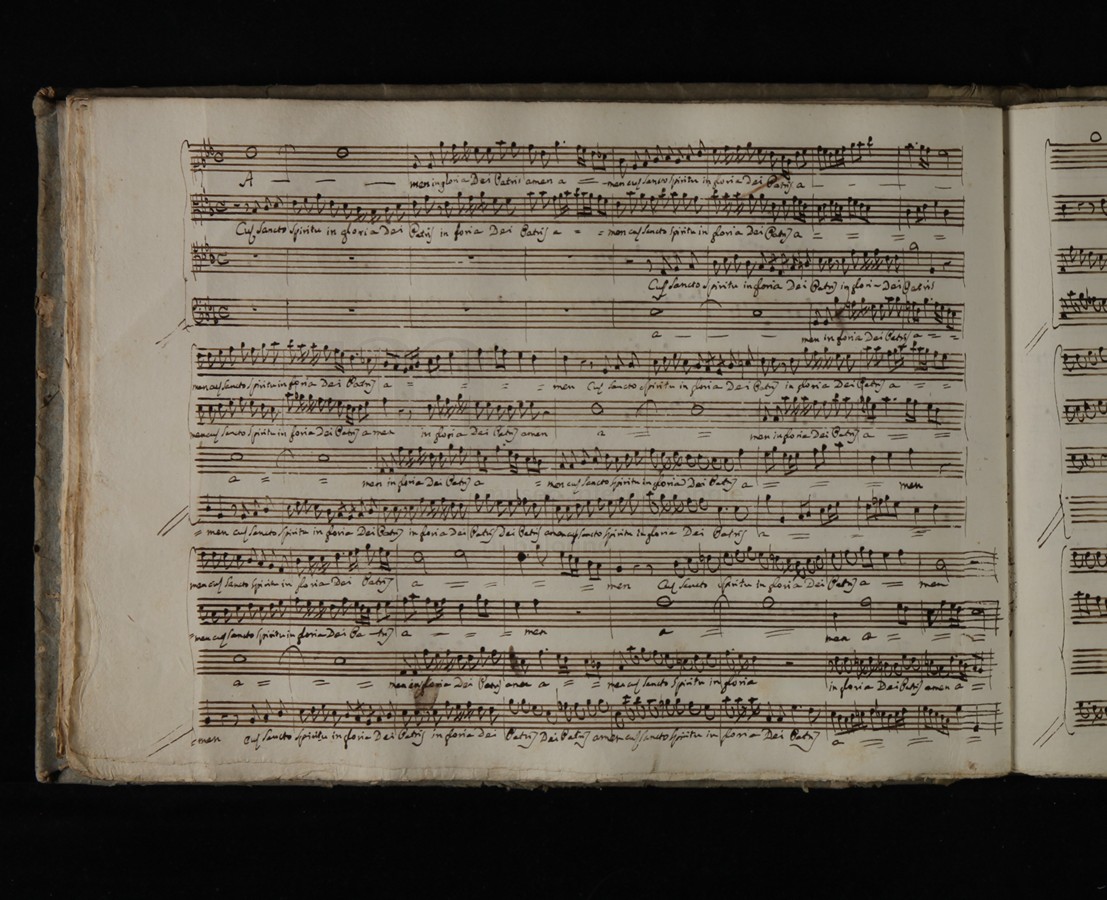 A — — — men in gloria Dei Patris amen a = = men cuj sancto spiritu in gloria Dei Patrij a
Cuj sancto spiritu in gloria Dei Patrij in gloria Dei Patrij a = = men cuj sancto spiritu in gloria Dei Patrij a = = = =
Cuj sancto spiritu in gloria Dei Patrij in gloria Dei Patris
a — — men in gloria Dei Patrij a = =
men cuj sancto spiritu in gloria Dei Patrij a = = = = men Cuj sancto spiritu in gloria Dei Patrij in gloria Dei Patrij a = =
men cuj sancto spiritu in gloria Dei Patrij a men in gloria Dei Patrij amen a = = men in gloria Dei Patrij a = = =
a = = men in gloria Dei Patrij a = men cuj sancto spiritu in gloria Dei Patrij a = = = men
= men cuj sancto spiritu in gloria Dei Patrij in gloria Dei Patrij Dei Patrij amen cuj sancto spiritu in gloria Dei Patrij a = = =
men cuj sancto spiritu in gloria Dei Patrij a = = = = men Cuj sancto spiritu in gloria Dei Patrij a = = men
men cuj sancto spiritu in gloria Dei Pa — trij a = = = men a = = men a = = =
a = = = men in gloria Dei Patrij amen a = = men cuj sancto spiritu in gloria in gloria Dei Patrij amen a =
men Cuj sancto spiritu in gloria Dei Patrij in gloria dei Patrij Dei Patrij amen cuj sancto spiritu in gloria Dei Patrij a = = = =